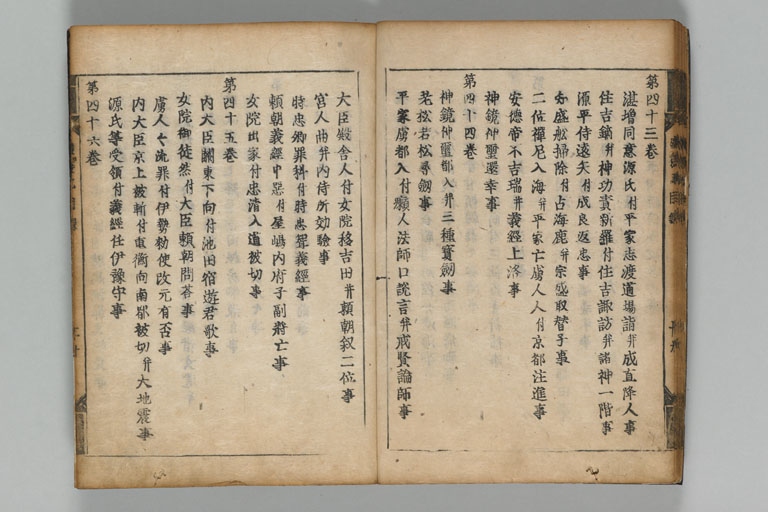 第四十三卷
湛増同意源氏付平家志渡道場詣并成直降人事
住吉鏑并神功責新羅付住吉諏訪并諸神一階事
源平侍遠矢付成良返忠事
知盛舩掃除付占海鹿并宗盛取替子事
二位禪尼入海并平家亡虜人人付京都注進事
安徳帝不吉瑞并義經上洛事
神鏡神璽還幸事
第四十四卷
神鏡神璽都入并三種寳劔事
老松若松尋劔事
平家虜都入付癩人法師口説言并戒賢論師事
大臣殿舎人付女院移吉田并頼朝叙二位事
宮人曲并内侍所効驗事
時忠卿罪科付時忠聟義經事
頼朝義經中惡付屋嶋内府子副將亡事
女院出家付忠清入道被切事
第四十五卷
内大臣關東下向付池田宿遊君歌事
女院御徒然付大臣頼朝問荅事
虜人人流罪付伊勢勅使改元有否事
内大臣京上被斬付重衡向南都被切并大地震事
源氏等受領付義經任伊豫守事
第四十六卷